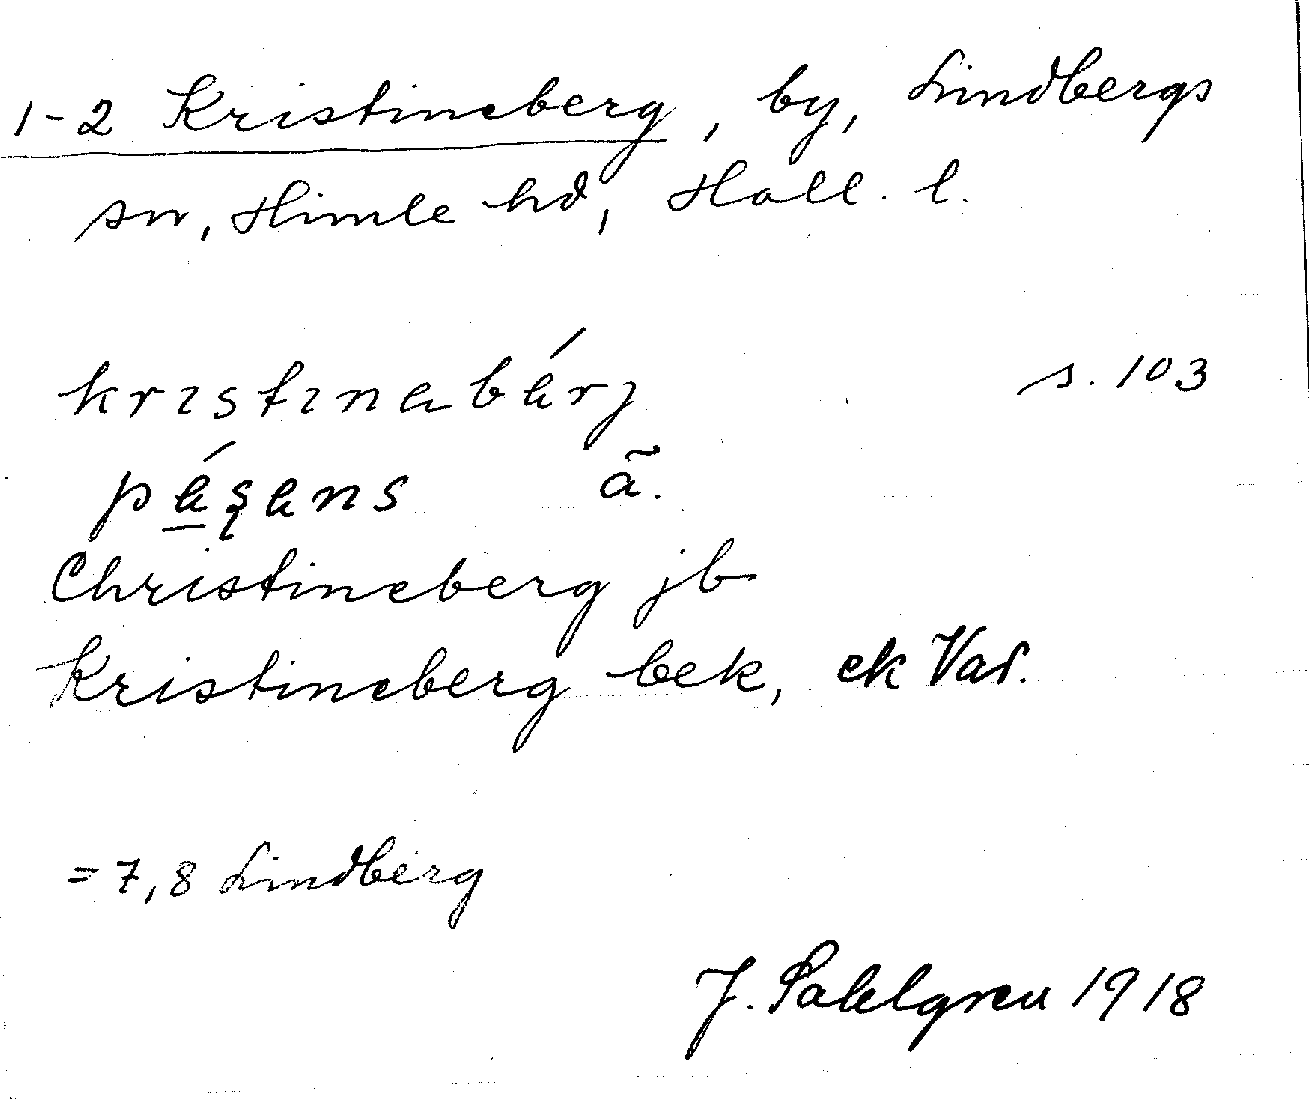 1-2 Kristineberg, by, Lindbergs
sn, Himle hd, Hall. l.
kristinabärj s. 103
pásans ã.
Christineberg jb
Kristineberg bek, ek Var.
= 7,8 Lindberg
J. Sahlgren 1918